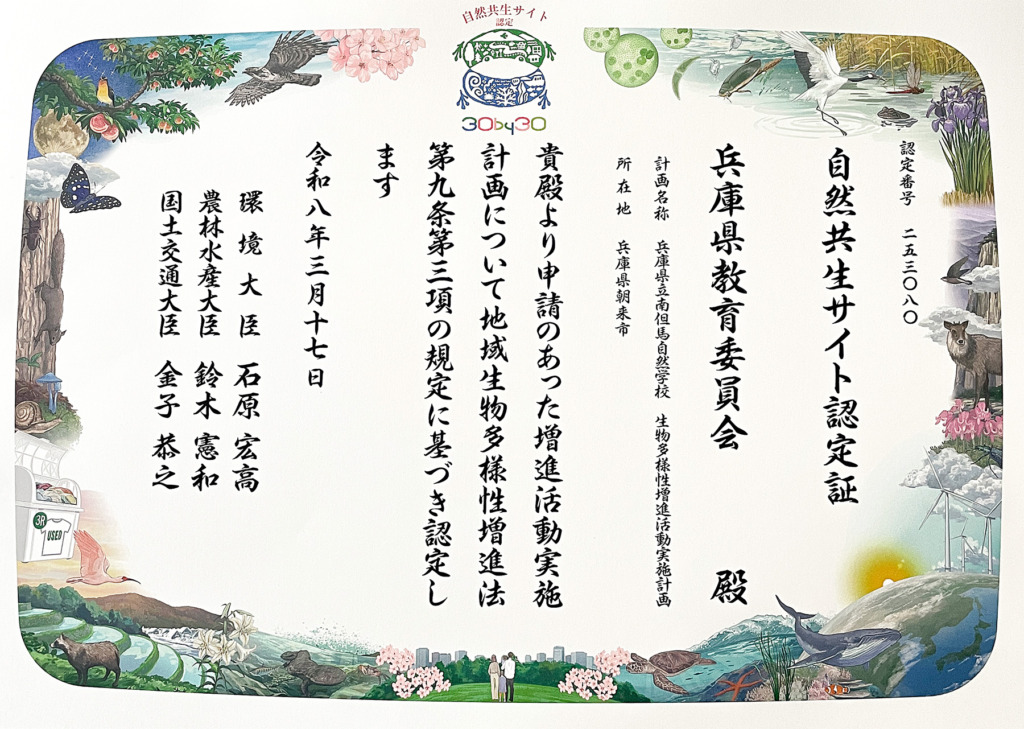 自然共生サイト
認定
30by30
認定番号 二五三〇八〇
自然共生サイト認定証
兵庫県教育委員会 殿
計画名称 兵庫県立南但馬自然学校 生物多様性増進活動実施計画
所在地 兵庫県朝来市
貴殿より申請のあった増進活動実施
計画について地域生物多様性増進法
第九条第三項の規定に基づき認定し
ます
令和八年三月十七日
環境大臣 石原 宏高
農林水産大臣 鈴木 憲和
国土交通大臣 金子 恭之
3R
USED